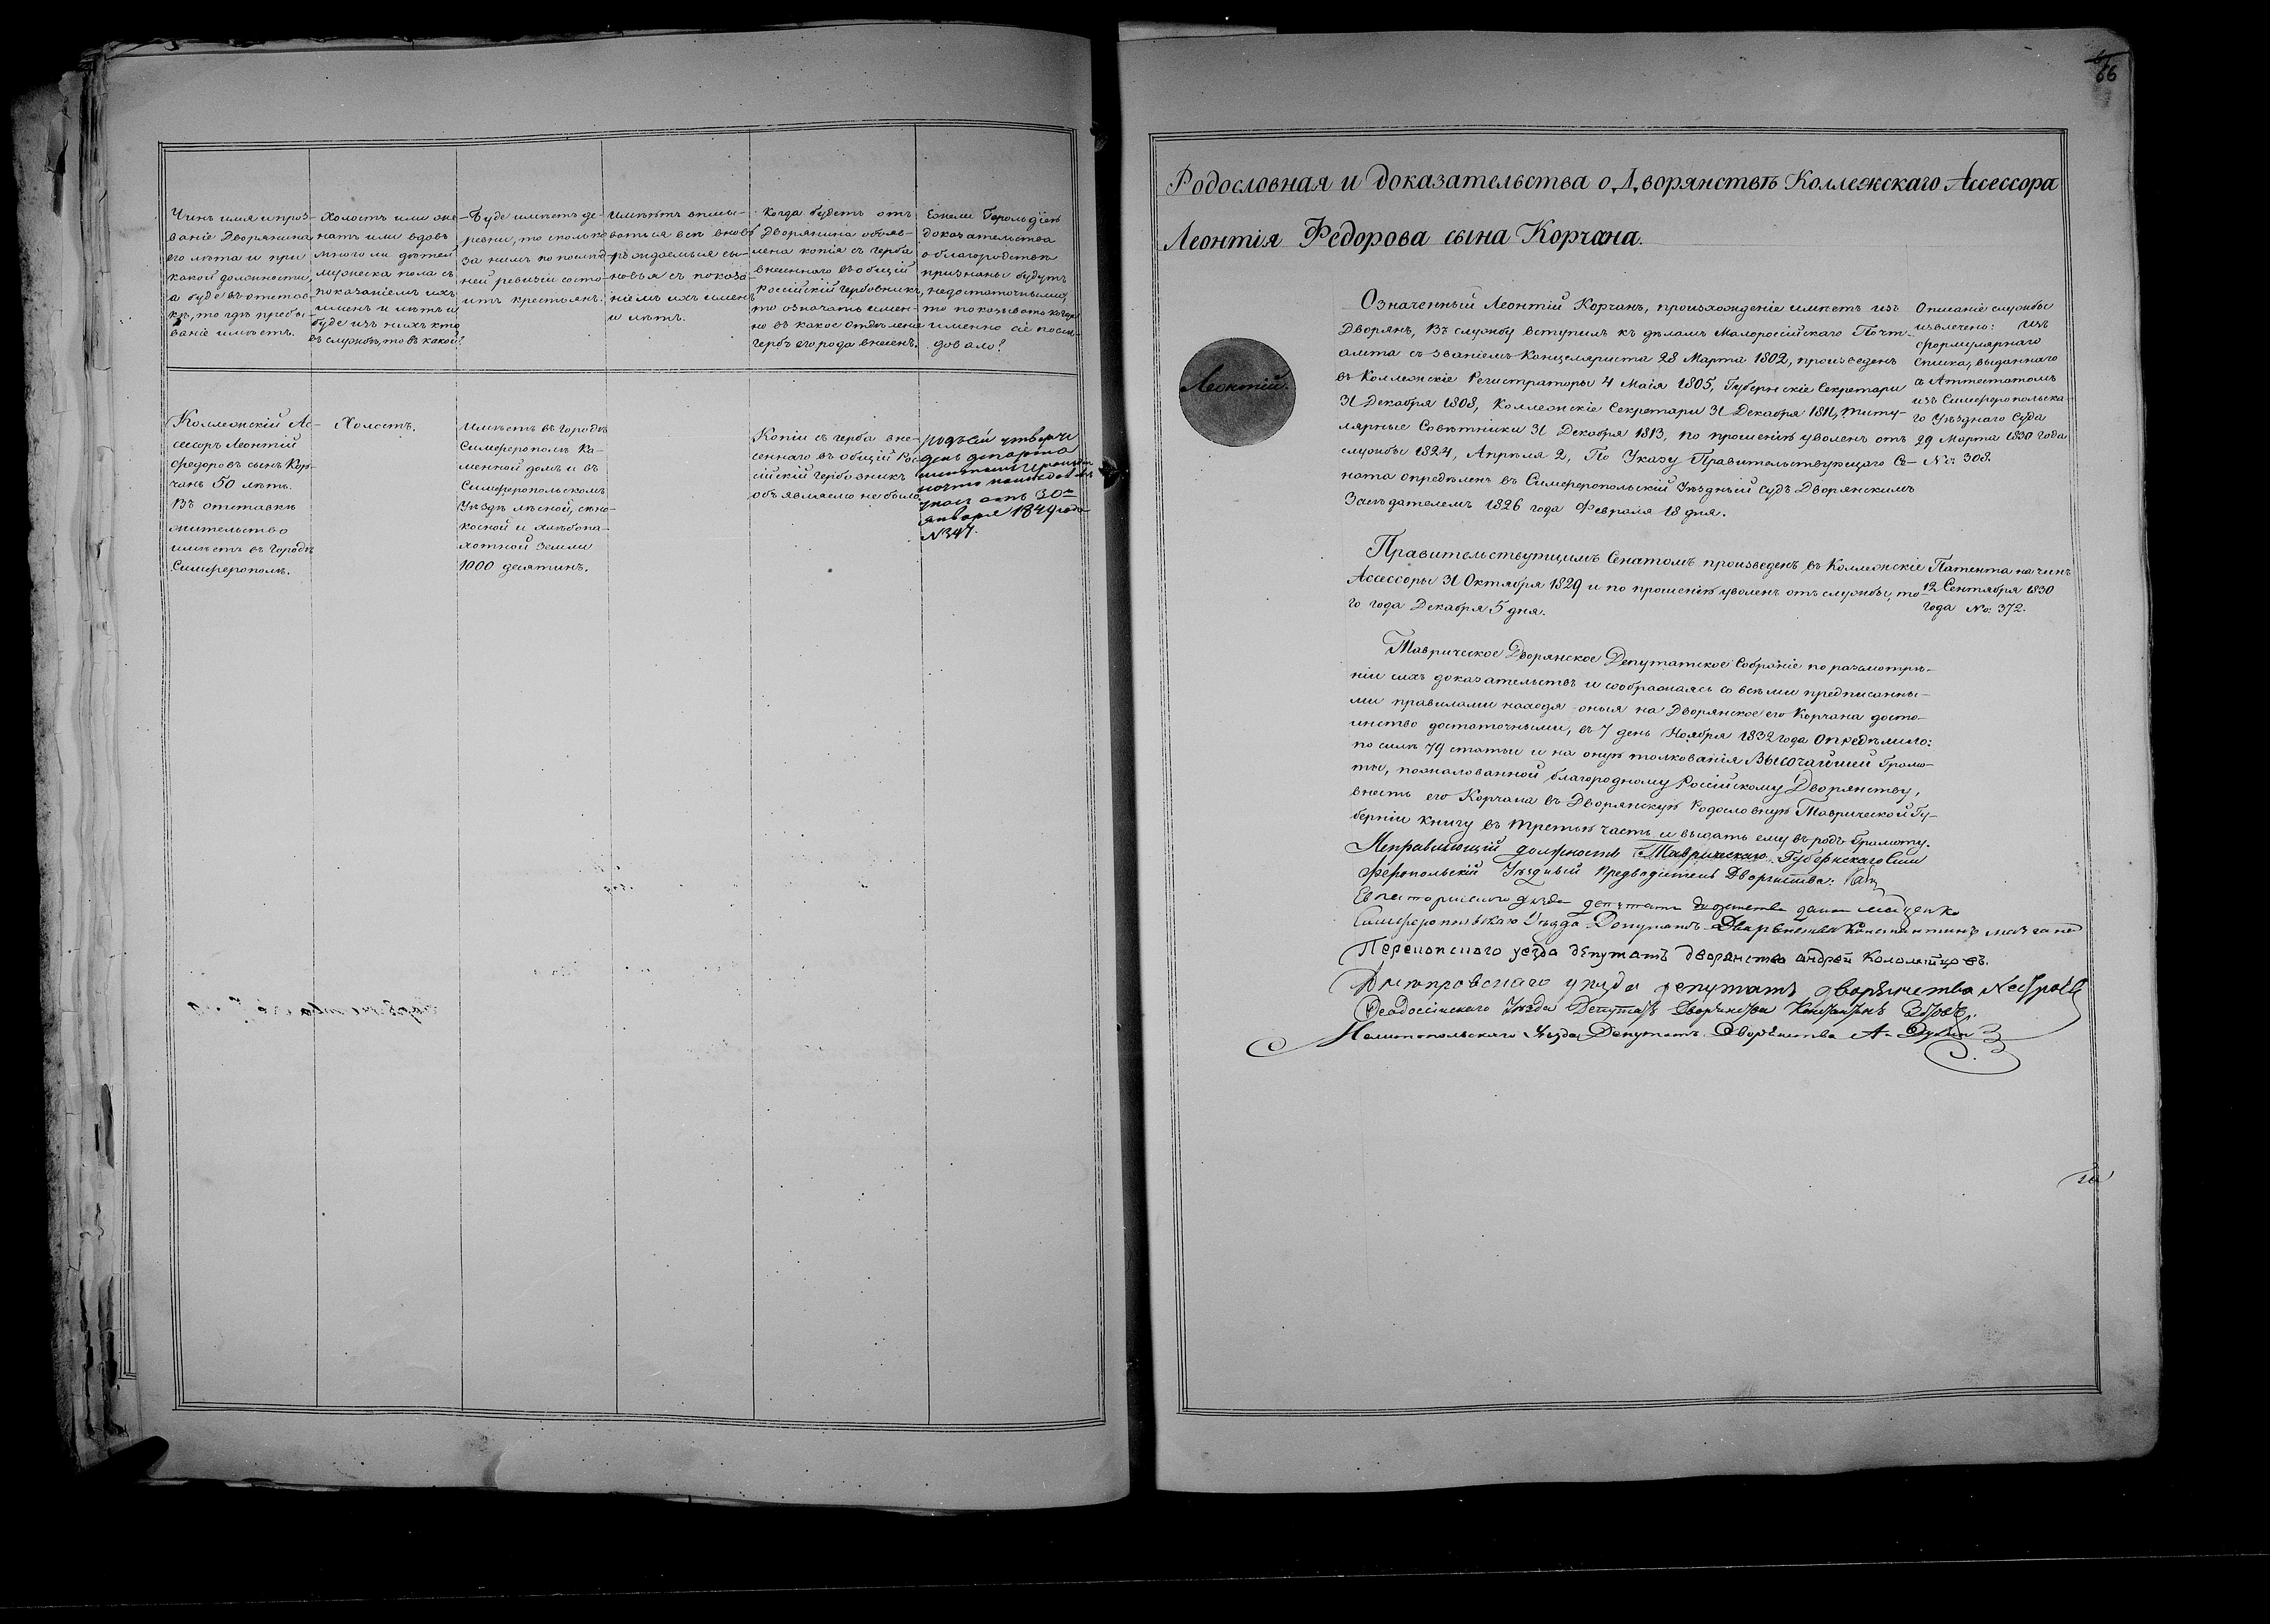 Чинъ имя и проз-
ваніе Дворянина
его лѣта и при
какой должности,
а буде въ отстав-
кѣ, то гдѣ пребы-
ваніе имѣетъ.
Холостъ или же-
натъ или вдовъ
много ли дѣтей
мужеска пола съ
показаніемъ ихъ
именъ и лѣтъ и
буде изъ нихъ кто
въ службѣ, то въ какой?
Буде имѣетъ де-
ревни, то сколько
за нимъ по послѣд-
ней ревизіи состо-
итъ крестьянъ.
Имѣютъ вписы-
ваться всѣ вновь
рождаемыя сы-
новья съ показа-
ніемъ ихъ именъ
и лѣтъ.
Когда будетъ отъ
Дворянина объяв-
лена копія съ герба
внесеннаго въ общій
Россійскій Гербовникъ,
то означать имен-
но въ какое отдѣленіе
гербъ его рода внесенъ.
Ежели Герольдіею
доказательства
о благородствѣ
признаны будутъ
недостаточными,
то показывать когда
именно сіе послѣ-
довало?
Коллежскій Ас-
сессоръ Леонтій
Федоровъ сынъ Кор-
чанъ 50 лѣтъ.
Въ отставкѣ
жительство
имѣетъ въ городѣ
Симферополѣ.
Холостъ.
Имѣетъ въ городѣ
Симферополѣ Ка-
менной домъ и въ
Симферопольскомъ
Уѣздѣ лѣсной, сѣно-
косной и хлѣбопа-
хотной земли
1000 десятинъ.
Копіи съ герба вне-
сеннаго въ общій Рос-
сійскій Гербовникъ
объявляемо не было.
родъ сей утверж
денъ департа
ментомъ Герольдіи
указ отъ 30го
января 1849 года
№ 347.
66
Родословная и доказательства о Дворянствѣ Коллежскаго Ассессора
Леонтія Федорова сына Корчана.
Леонтій.
Означенный Леонтій Корчанъ, происхожденіе имѣетъ изъ
Дворянъ, въ службу вступилъ къ дѣламъ Малоросійскаго Почт-
амта съ званіемъ Канцеляриста 28 Марта 1802, произведенъ
въ Коллежскіе Регистраторы 4 Маія 1805, Губернскіе Секретари
31 Декабря 1808, Коллежскіе Секретари 31 Декабря 1811, Титу-
лярные Совѣтники 31 Декабря 1813, по прошенію уволенъ отъ
службы 1824, Апрѣля 2, По Указу Правительствующаго Се-
ната опредѣленъ въ Симферопольскій Уѣздный Судъ Дворянскимъ
Засѣдателемъ 1826 года Февраля 18 дня.
Описаніе службы
извлечено: изъ
формулярнаго
списка, выданнаго
съ Аттестатомъ
изъ Симферопольска-
го Уѣзднаго Суда
29 Марта 1830 года
№ 308.
Правительствующимъ Сенатомъ произведенъ въ Коллежскіе
Ассессоры 31 Октября 1829 и по прошенію уволенъ отъ службы, то-
го года Декабря 5 дня.
Патента на чинъ
12 Сентября 1830
года № 372.
Таврическое Дворянское Депутатское Собраніе по разсмотрѣ-
ніи сихъ доказательствъ и соображаясь со всѣми предписанны-
ми правилами находя оныя на Дворянское его Корчана досто-
инство достаточными, въ 7 день Ноября 1832 года Опредѣлило:
по силѣ 79 статьи и на оную толкованія Высочайшей Грамо-
ты, пожалованной благородному Россійскому Дворянству,
внесть его Корчана въ Дворянскую Родословную Таврической Гу-
берніи книгу въ третью часть и выдать ему въ родъ Грамоту.
Исправляющій должность Таврическаго Губернскаго Сим
феропольскій Уѣздный Предводитель Дворянства:
Евпаторійскаго уѣзда депутатъ дворянства
Симферопольскаго Уѣзда Депутатъ Дворянства Константинъ
Перекопскаго уезда депутатъ дворянства андрей Коломейцовъ.
Днепровскаго уѣзда депутатъ дворянства
Феодосійскаго Уѣзда Депутатъ Дворянства
Мелитопольскаго Уѣзда Депутатъ Дворянства А.